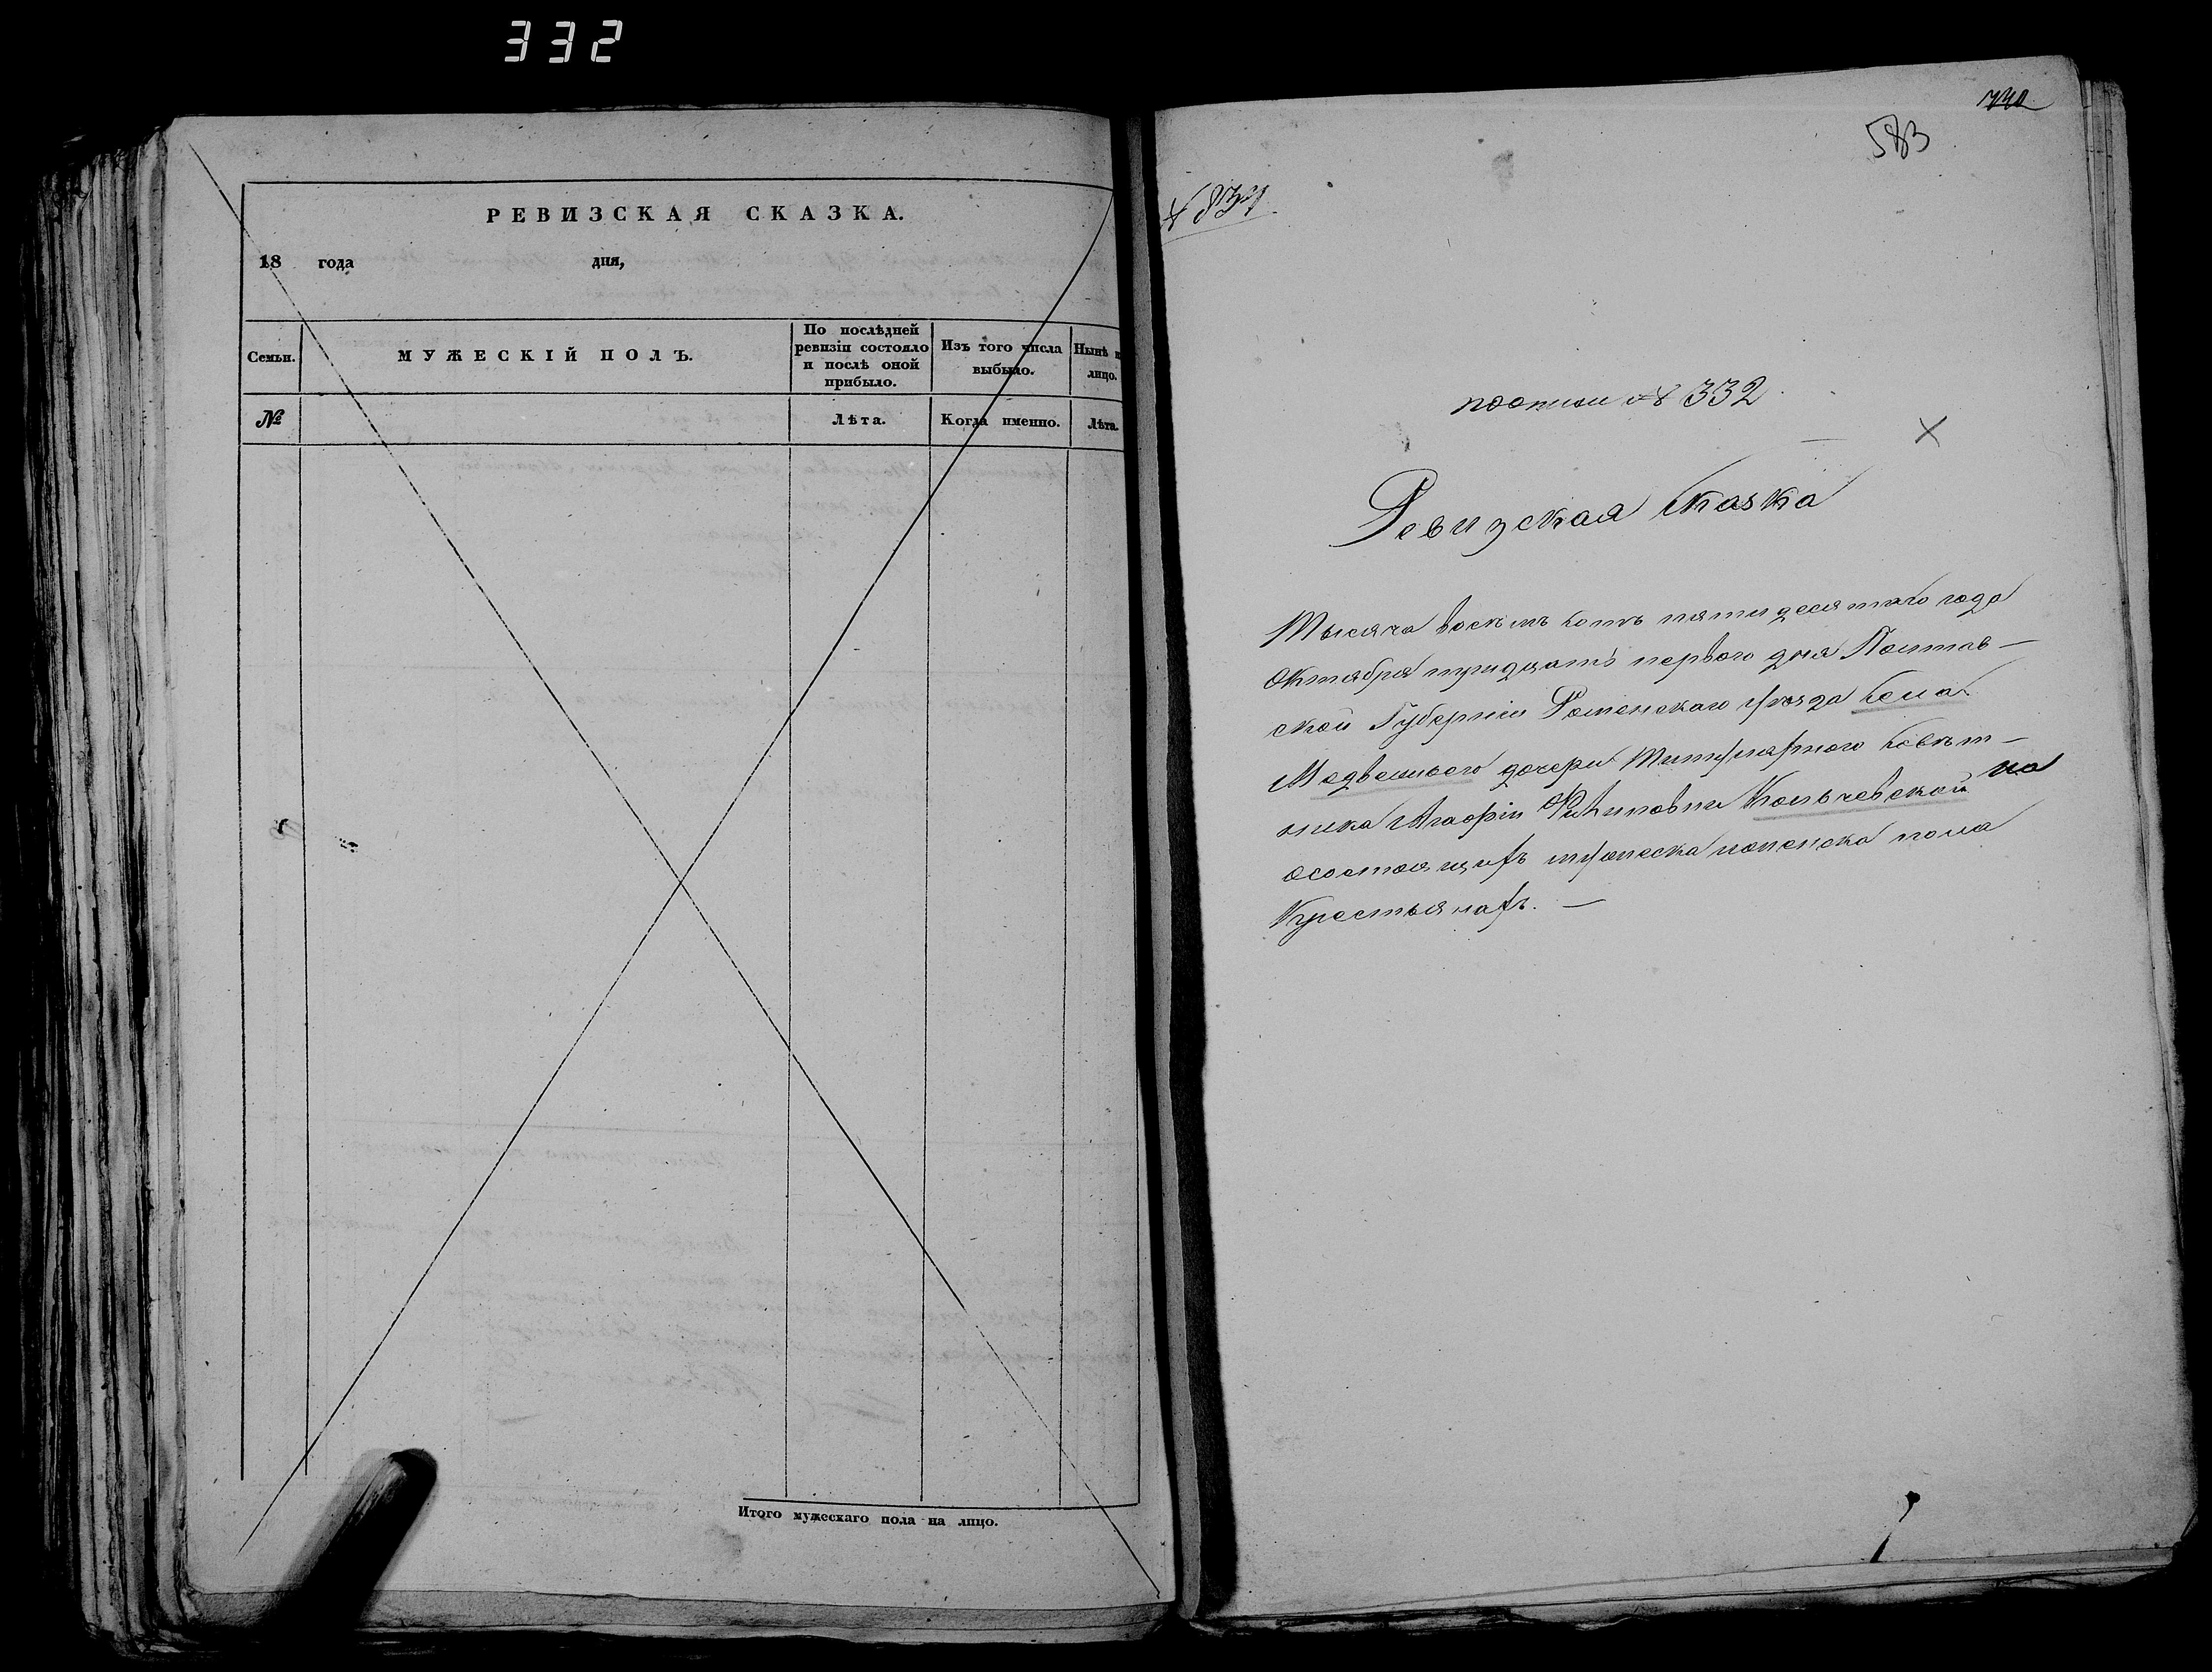 332
РЕВИЗСКАЯ СКАЗКА.
18 года дня,
Семьи.
МУЖЕСКІЙ ПОЛЪ.
По послѣдней
ревизіи состояло
и послѣ оной
прибыло.
Изъ того числа
выбыло.
Нынѣ
лицо.
№
Лѣта.
Когда именно.
Лѣта.
Итого мужескаго пола на лицо.
583
по описи № 332
Ревизская Сказка
Тысяча восемъ сотъ пятидесятаго года
Октября тридцать перваго дня Полтав-
ской Губерніи Роменскаго уѣзда Села
Медвежьего дочери Титулярного Совѣт-
ника Агафіи Филиповны Кольчевской
на
осостоящихъ мужеска иженска пола
Крестьянахъ. —